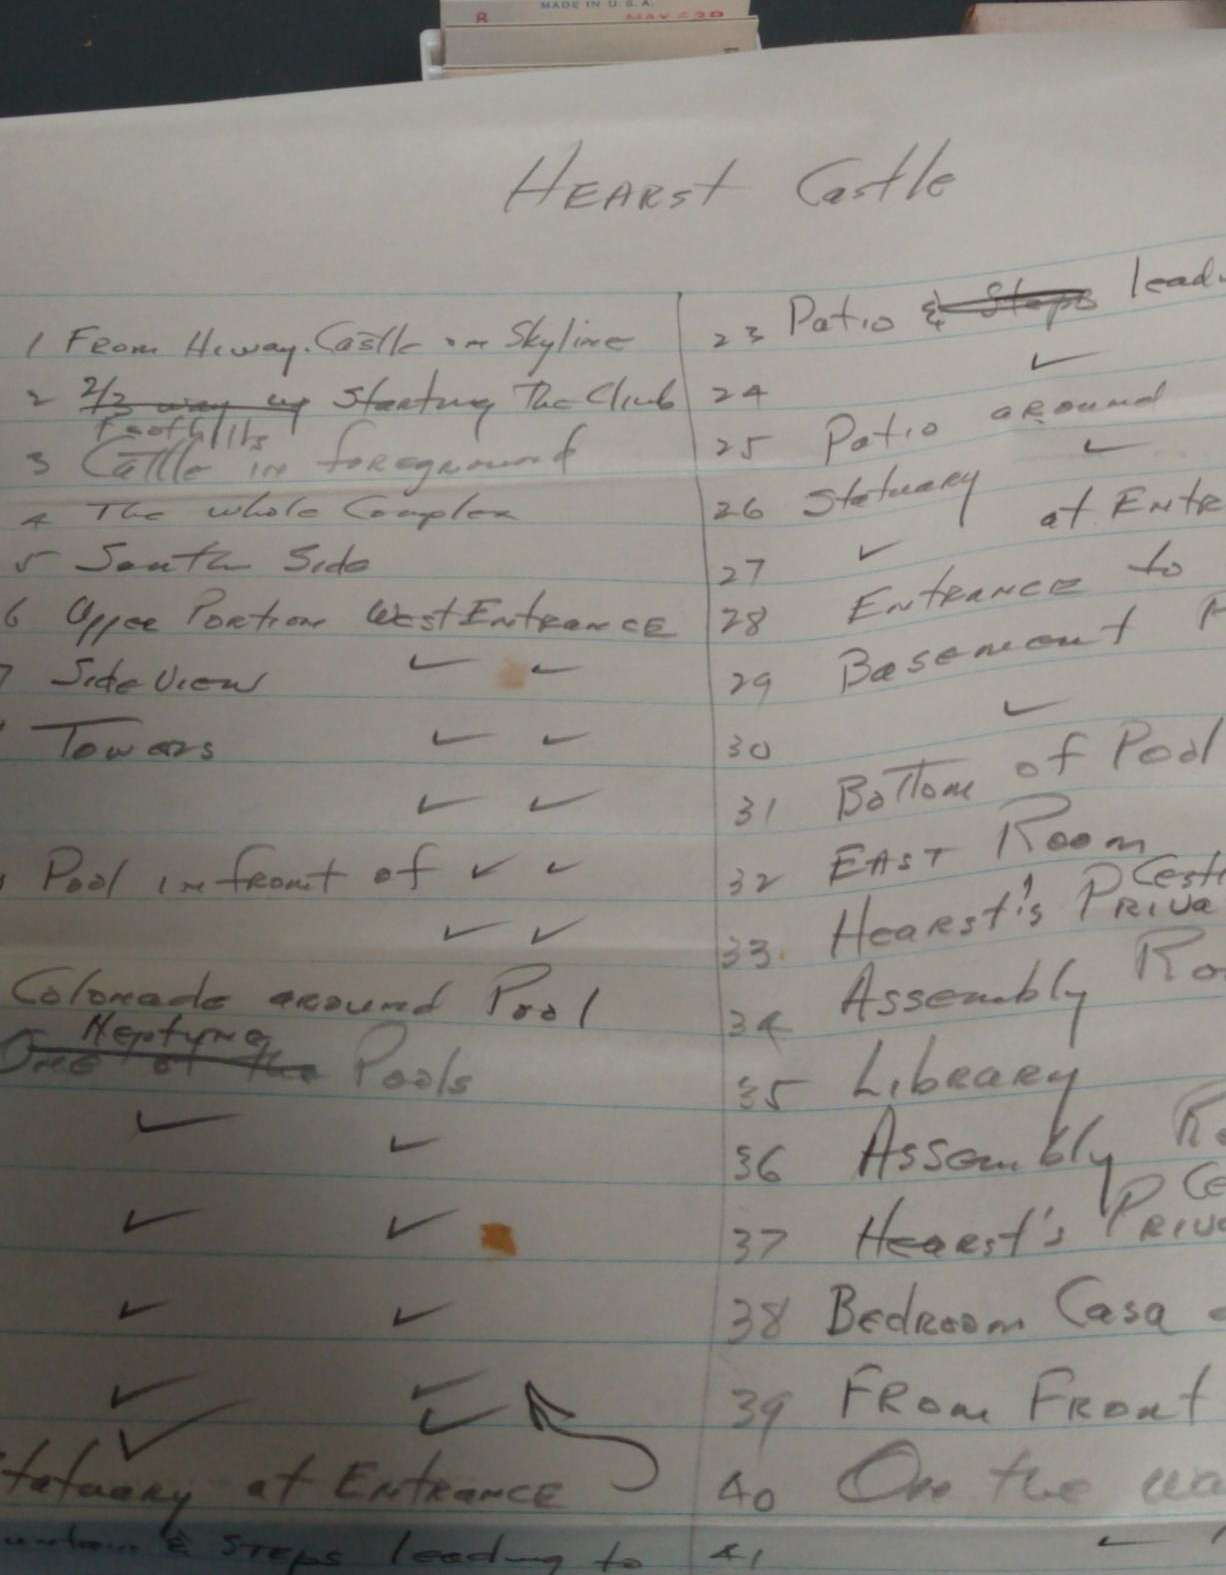 8
MADE IN U.S.A.
HEARST Castle
1 From Hiway. Castle on Skyline
2 2/3 way up Starting The Climb
Foothills
3 Cattle in foreground
4 The whole Complex
5 South Side
6 Upper Portion West Entrance
7 Side View ✓ ✓
Towers ✓ ✓
✓ ✓
Pool in front of ✓ ✓
✓ ✓
Colonade around Pool
Neptune
One of the Pools
✓ ✓
✓ ✓
✓ ✓
✓ ✓
✓ ✓
Statuary at Entrance
& Steps leading to
23 Patio & Steps
24 ✓
25 Patio around
26 Statuary ✓
at
27 ✓
28 Entrance to
29 Basement
30 ✓
31 Bottom of Pool
32 East Room
33 Hearst's
34 Assembly
35 Library
36 Assembly
37 Hearst's
38 Bedroom Casa
39 From Front
40 On the
41 ✓